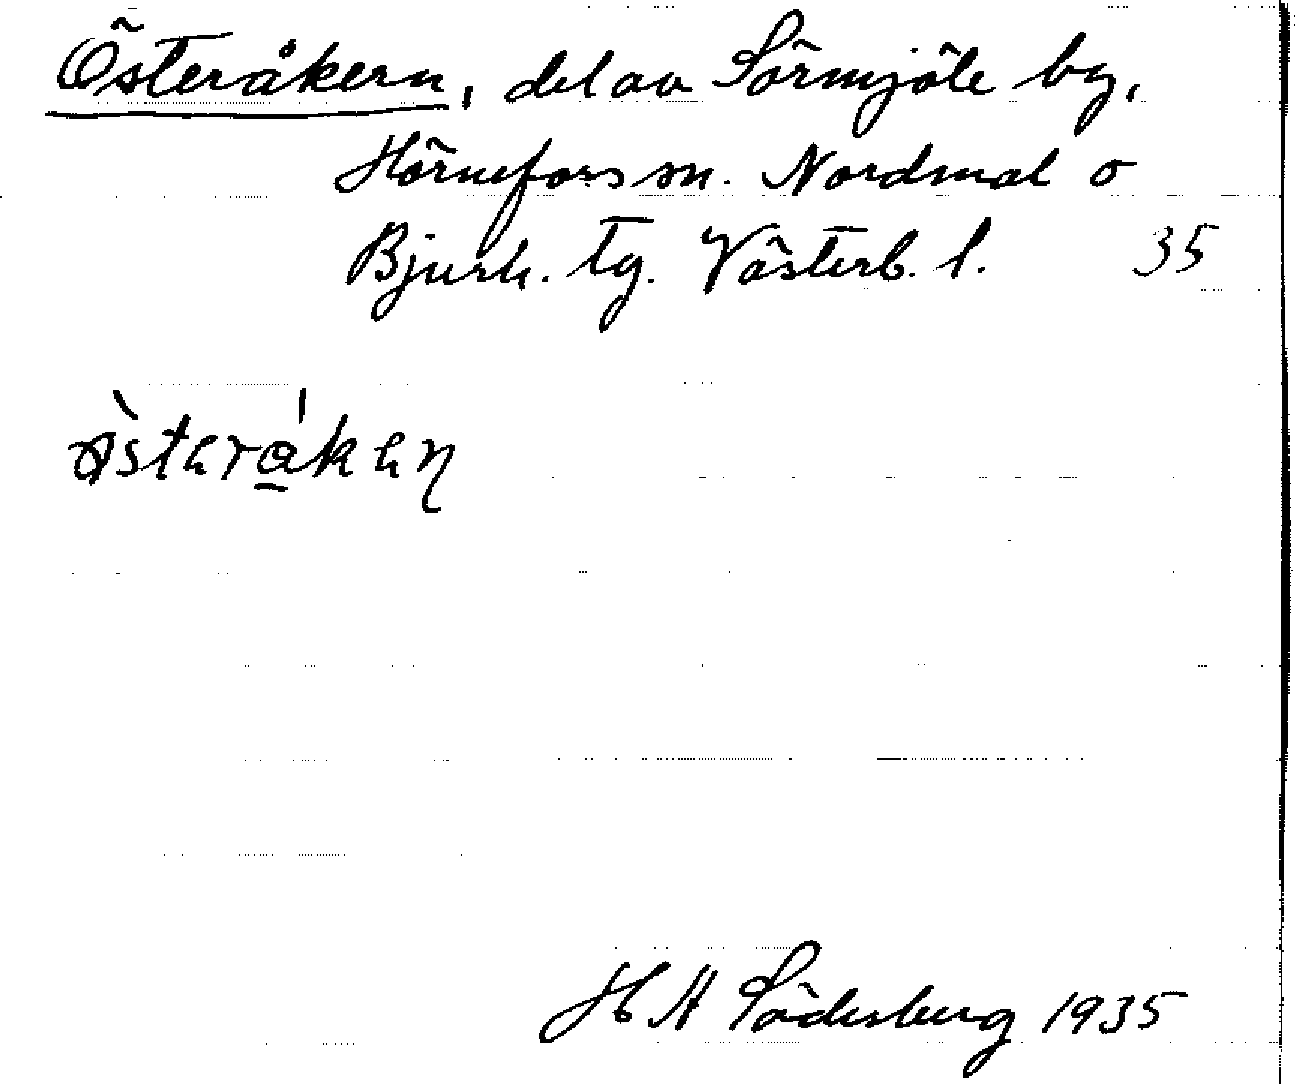 Österåkern, del av Sörmjöle by,
Hörnefors sn. Nordmal o
Bjurh. tg. Västerb. l. 35
H A Söderberg 1935